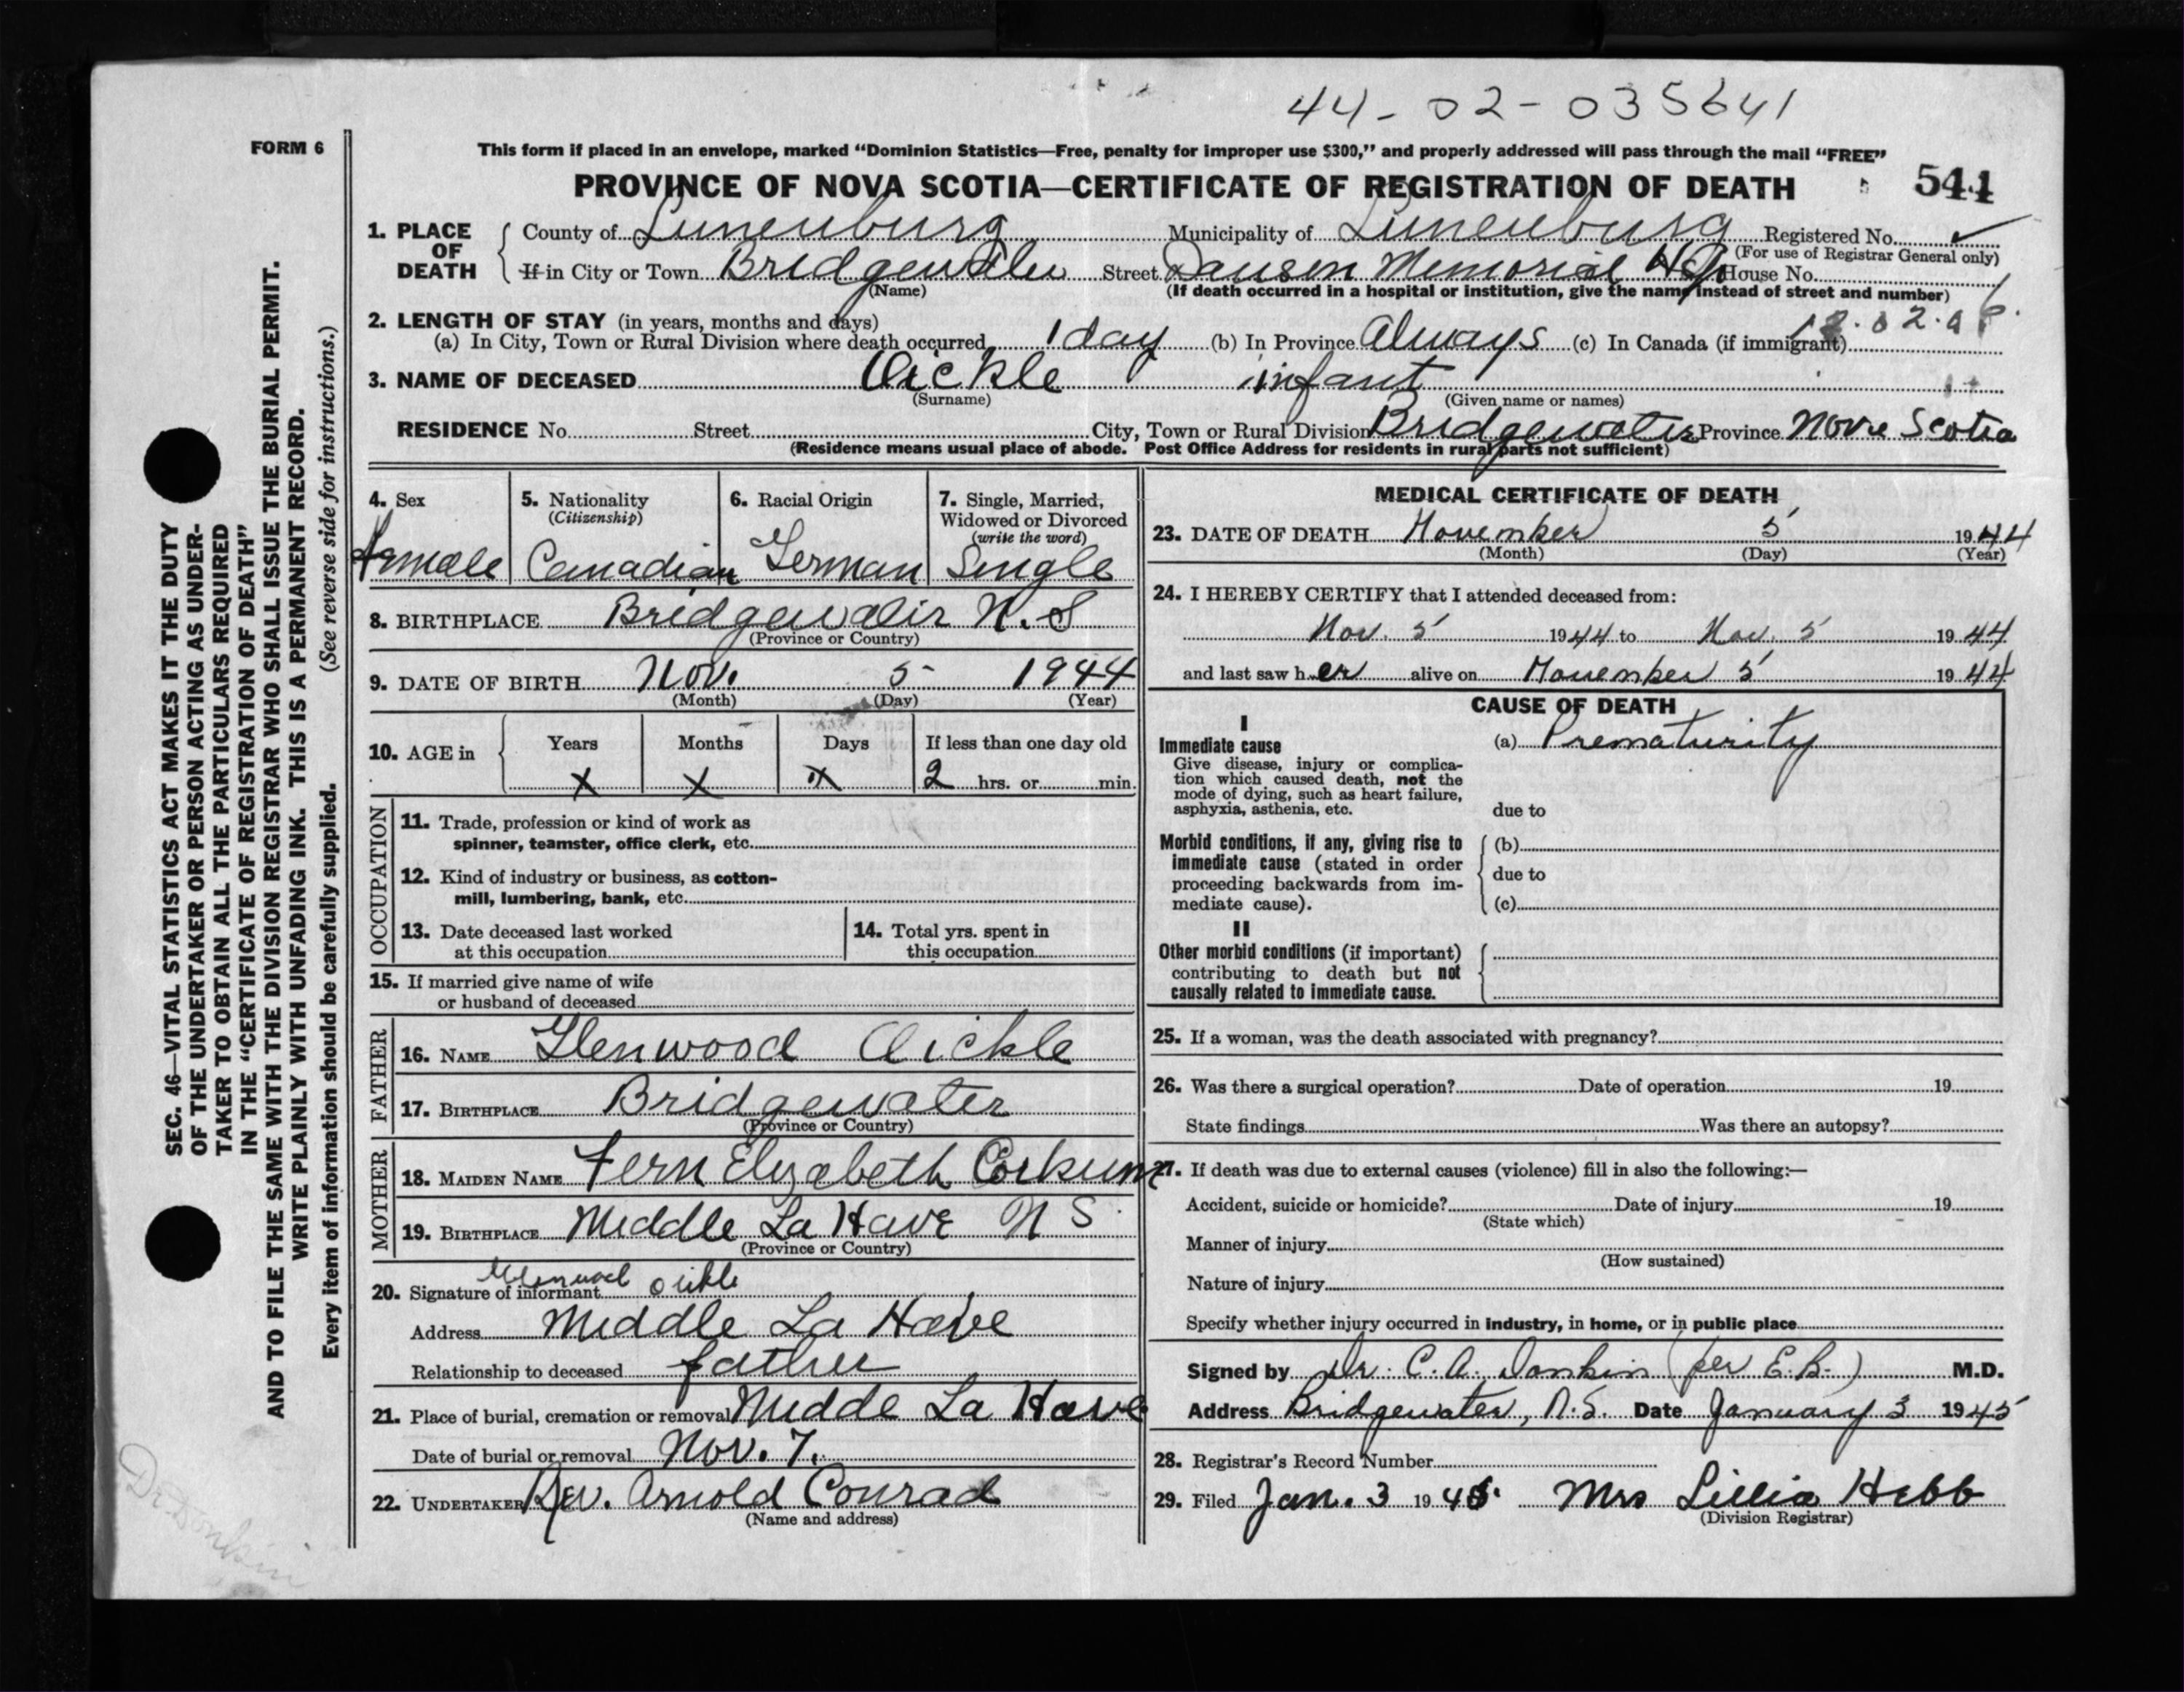 44-02-035641
FORM 6
This form if placed in an envelope, marked "Dominion Statistics—Free, penalty for improper use $300," and properly addressed will pass through the mail "FREE"
PROVINCE OF NOVA SCOTIA—CERTIFICATE OF REGISTRATION OF DEATH 544
1. PLACE OF DEATH County of Lunenburg Municipality of Lunenburg Registered No. ✓
(For use of Registrar General only)
If in City or Town Bridgewater Street Dawson Memorial House No.
(Name) (If death occurred in a hospital or institution, give the name instead of street and number)
2. LENGTH OF STAY (in years, months and days)
(a) In City, Town or Rural Division where death occurred 1 day (b) In Province Always (c) In Canada (if immigrant)
3. NAME OF DECEASED Oickle infant
(Surname) (Given name or names)
RESIDENCE No. Street City, Town or Rural Division Bridgewater Province Nova Scotia
(Residence means usual place of abode. Post Office Address for residents in rural parts not sufficient)
4. Sex 5. Nationality 6. Racial Origin 7. Single, Married,
(Citizenship) Widowed or Divorced
(write the word)
Female Canadian German Single
8. BIRTHPLACE Bridgewater N.S
(Province or Country)
9. DATE OF BIRTH Nov. 5 1944
(Month) (Day) (Year)
10. AGE in Years Months Days If less than one day old
x x x 2 hrs. or min.
OCCUPATION
11. Trade, profession or kind of work as
spinner, teamster, office clerk, etc.
12. Kind of industry or business, as cotton-
mill, lumbering, bank, etc.
13. Date deceased last worked 14. Total yrs. spent in
at this occupation this occupation
15. If married give name of wife
or husband of deceased
FATHER
16. NAME Glenwood Oickle
17. BIRTHPLACE Bridgewater
(Province or Country)
MOTHER
18. MAIDEN NAME Fern Elizabeth Corkum
19. BIRTHPLACE Middle La Have N S
(Province or Country)
20. Signature of informant Glenwood Oickle
Address Middle La Have
Relationship to deceased father
21. Place of burial, cremation or removal Middle La Have
Date of burial or removal Nov. 7.
22. UNDERTAKER Rev. Arnold Conrad
(Name and address)
MEDICAL CERTIFICATE OF DEATH
23. DATE OF DEATH November 5 1944
(Month) (Day) (Year)
24. I HEREBY CERTIFY that I attended deceased from:
Nov. 5 1944 to Nov. 5 1944
and last saw her alive on November 5 1944
CAUSE OF DEATH
I
Immediate cause (a) Prematurity
Give disease, injury or complica-
tion which caused death, not the
mode of dying, such as heart failure,
asphyxia, asthenia, etc. due to
Morbid conditions, if any, giving rise to (b)
immediate cause (stated in order
proceeding backwards from im- due to
mediate cause). (c)
II
Other morbid conditions (if important)
contributing to death but not
causally related to immediate cause.
25. If a woman, was the death associated with pregnancy?
26. Was there a surgical operation? Date of operation 19
State findings Was there an autopsy?
27. If death was due to external causes (violence) fill in also the following:—
Accident, suicide or homicide? Date of injury 19
(State which)
Manner of injury
(How sustained)
Nature of injury
Specify whether injury occurred in industry, in home, or in public place
Signed by Dr. C. A. Donkin (per E.B.) M.D.
Address Bridgewater, N.S. Date January 3 1945
28. Registrar's Record Number
29. Filed Jan. 3 1945 Mrs Lillia Hebb
(Division Registrar)
SEC. 46—VITAL STATISTICS ACT MAKES IT THE DUTY
OF THE UNDERTAKER OR PERSON ACTING AS UNDER-
TAKER TO OBTAIN ALL THE PARTICULARS REQUIRED
IN THE "CERTIFICATE OF REGISTRATION OF DEATH"
AND TO FILE THE SAME WITH THE DIVISION REGISTRAR WHO SHALL ISSUE THE BURIAL PERMIT.
WRITE PLAINLY WITH UNFADING INK. THIS IS A PERMANENT RECORD.
Every item of information should be carefully supplied. (See reverse side for instructions.)
Dr Donkin